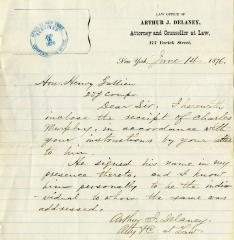 LAW OFFICE OF
ARTHUR J. DELANEY,
Attorney and Counsellor at Law,
277 Varick Street,
New York, June 14 1876.
Hon. Henry
Dear Sir. I herewith
inclose the receipt of Charles
Murphy, in accordance with
your instructions by your letter
to him.
He signed his name in my
presence thereto, and I know
him personally to be the indi-
vidual to whom the same was
addressed.
Arthur J. Delaney
Atty &c at Law